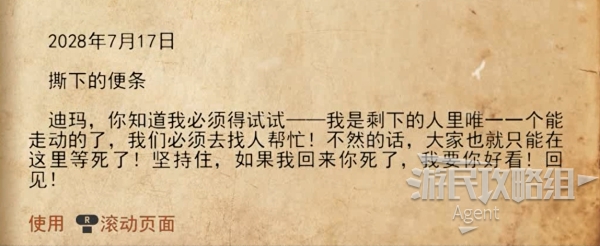 2028年7月17日
撕下的便条
迪玛，你知道我必须得试试——我是剩下的人里唯一一个能
走动的了，我们必须去找人帮忙！不然的话，大家也就只能在
这里等死了！坚持住，如果我回来你死了，我要你好看！回
见！
使用 R 滚动页面
游民攻略组
Agent